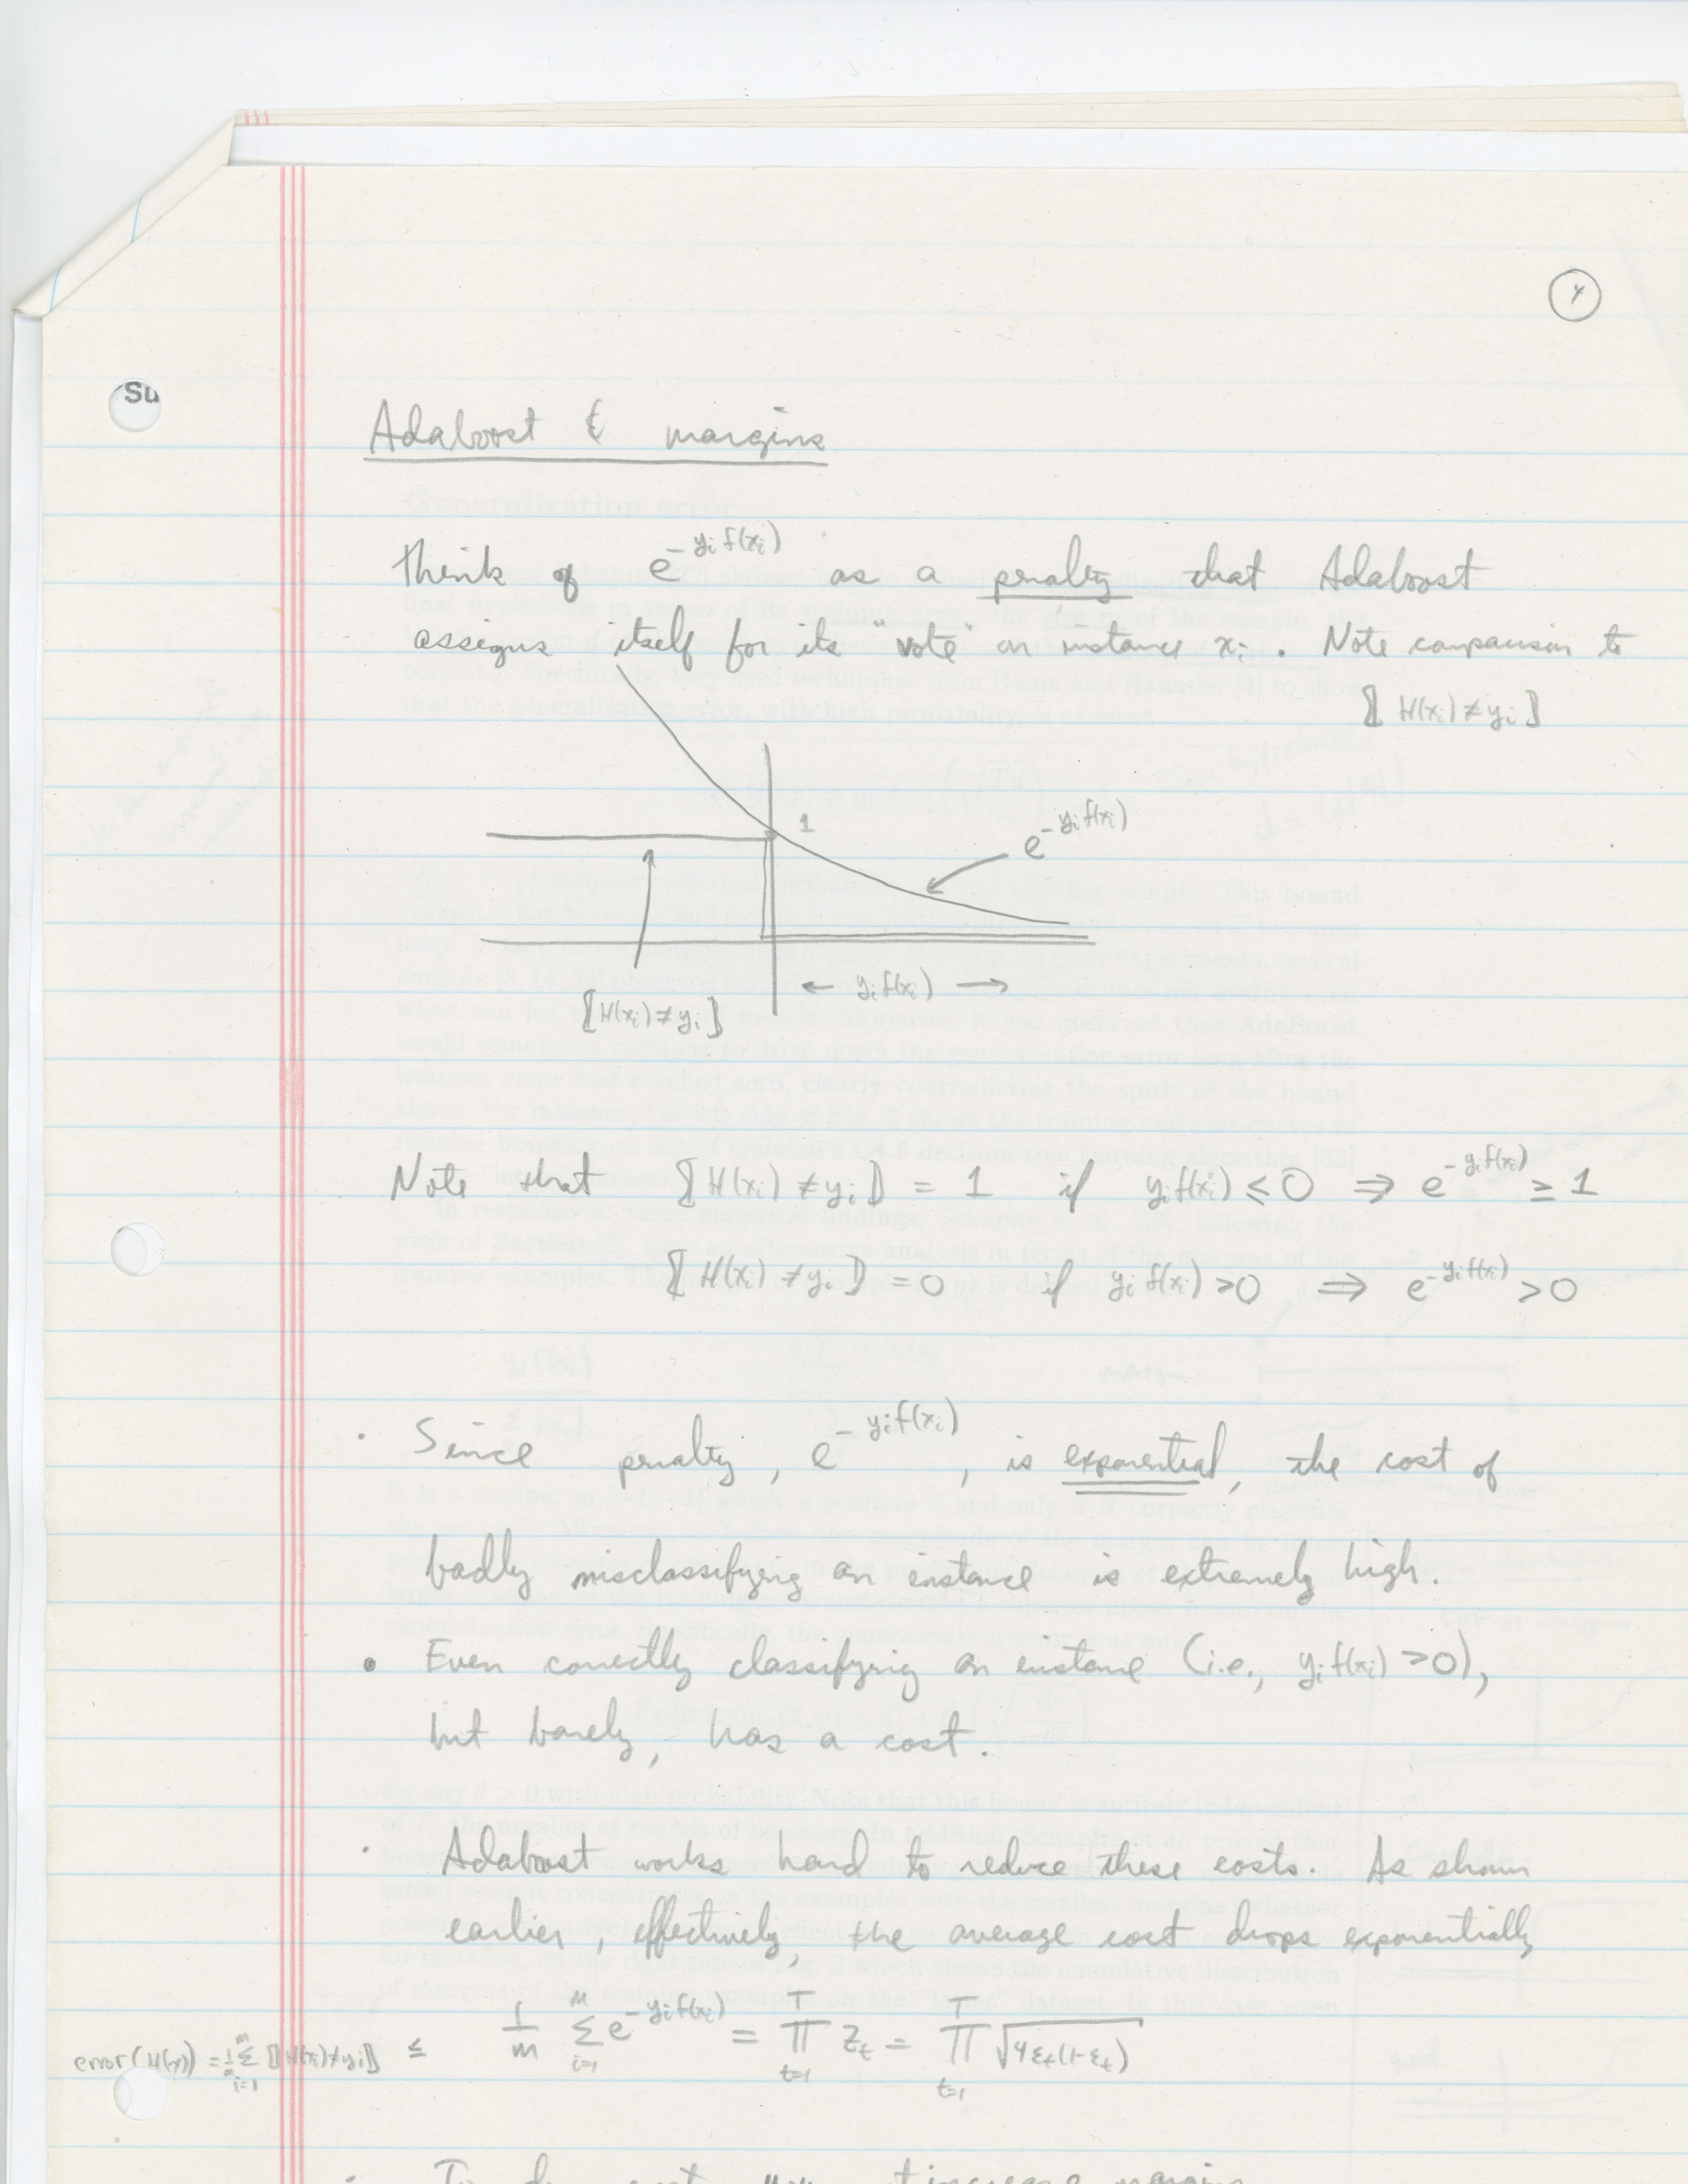 4
Su
Adaboost & margins
Think of e^{-y_i f(x_i)} as a penalty that Adaboost
assigns itself for its "vote" on instance x_i. Note comparison to
⟦H(x_i) ≠ y_i⟧
1
e^{-y_i f(x_i)}
← y_i f(x_i) →
⟦H(x_i) ≠ y_i⟧
Note that ⟦H(x_i) ≠ y_i⟧ = 1 if y_i f(x_i) ≤ 0 ⇒ e^{-y_i f(x_i)} ≥ 1
⟦H(x_i) ≠ y_i⟧ = 0 if y_i f(x_i) > 0 ⇒ e^{-y_i f(x_i)} > 0
· Since penalty, e^{-y_i f(x_i)}, is exponential, the cost of
badly misclassifying an instance is extremely high.
• Even correctly classifying an instance (i.e., y_i f(x_i) > 0),
but barely, has a cost.
· Adaboost works hard to reduce these costs. As shown
earlier, effectively, the average cost drops exponentially
error(H(x)) = 1/m Σ_{i=1}^{m} ⟦H(x_i) ≠ y_i⟧ ≤ 1/m Σ_{i=1}^{m} e^{-y_i f(x_i)} = Π_{t=1}^{T} Z_t = Π_{t=1}^{T} √(4ε_t(1-ε_t))